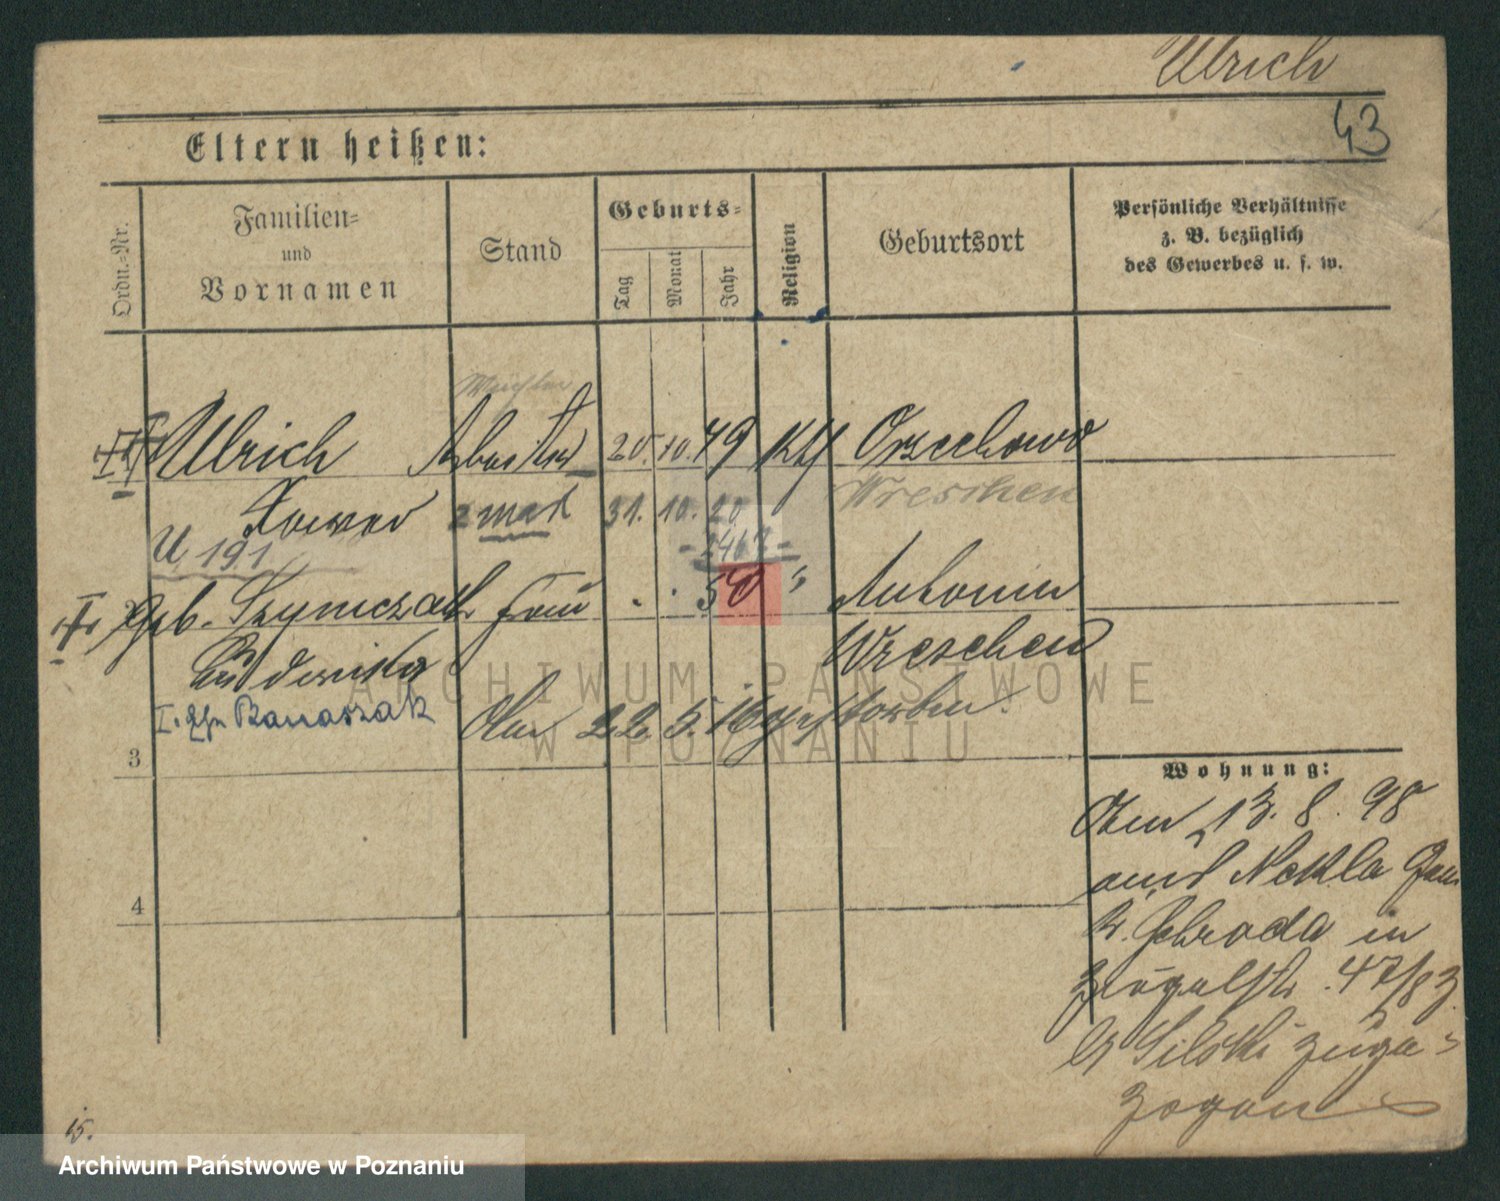 Ulrich
43
Eltern heißen:
Ordn.-Nr.
Familien-
und
Vornamen
Stand
Geburts-
Tag
Monat
Jahr
Religion
Geburtsort
Persönliche Verhältnisse
z. B. bezüglich
des Gewerbes u. s. w.
Ulrich Arbeiter 20. 10. 49 Kth Orzechowo
31. 10. 20 Wreschen
U 191
geb. Szymczak Frau 50 " Antonin
Ludowika Wreschen
Banaszak
Am 22. 5. 16 gestorben.
3
4
Wohnung:
Am 13. 8. 98
aus Nekla
Kr. Schroda in
47/83
zuge-
zogen
15.
ARCHIWUM PAŃSTWOWE
W POZNANIU
Archiwum Państwowe w Poznaniu